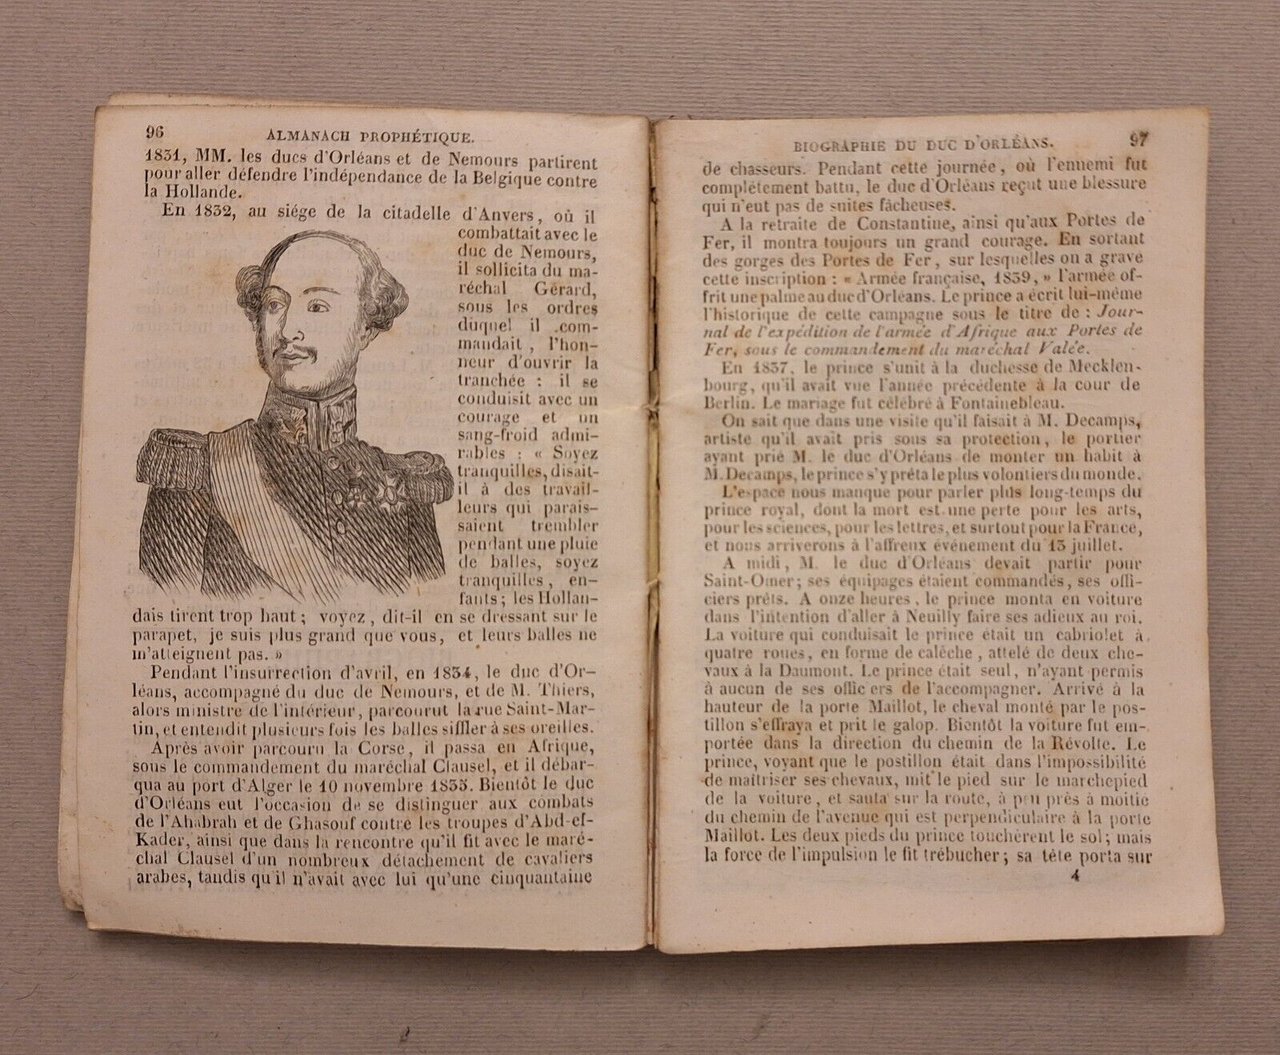 96
ALMANACH PROPHÉTIQUE.
1831, MM. les ducs d'Orléans et de Nemours partirent
pour aller défendre l'indépendance de la Belgique contre
la Hollande.
En 1832, au siége de la citadelle d'Anvers, où il
combattait avec le
duc de Nemours,
il sollicita du ma-
réchal Gérard,
sous les ordres
duquel il com-
mandait, l'hon-
neur d'ouvrir la
tranchée : il se
conduisit avec un
courage et un
sang-froid admi-
rables : « Soyez
tranquilles, disait-
il à des travail-
leurs qui parais-
saient trembler
pendant une pluie
de balles, soyez
tranquilles, en-
fants; les Hollan-
dais tirent trop haut; voyez, dit-il en se dressant sur le
parapet, je suis plus grand que vous, et leurs balles ne
m'atteignent pas. »
Pendant l'insurrection d'avril, en 1834, le duc d'Or-
léans, accompagné du duc de Nemours, et de M. Thiers,
alors ministre de l'intérieur, parcourut la rue Saint-Mar-
tin, et entendit plusieurs fois les balles siffler à ses oreilles.
Après avoir parcouru la Corse, il passa en Afrique,
sous le commandement du maréchal Clausel, et il débar-
qua au port d'Alger le 10 novembre 1835. Bientôt le duc
d'Orléans eut l'occasion de se distinguer aux combats
de l'Ahabrah et de Ghasouf contre les troupes d'Abd-el-
Kader, ainsi que dans la rencontre qu'il fit avec le maré-
chal Clausel d'un nombreux détachement de cavaliers
arabes, tandis qu'il n'avait avec lui qu'une cinquantaine
BIOGRAPHIE DU DUC D'ORLÉANS.
97
de chasseurs. Pendant cette journée, où l'ennemi fut
complétement battu, le duc d'Orléans reçut une blessure
qui n'eut pas de suites fâcheuses.
A la retraite de Constantine, ainsi qu'aux Portes de
Fer, il montra toujours un grand courage. En sortant
des gorges des Portes de Fer, sur lesquelles on a gravé
cette inscription : « Armée française, 1839, » l'armée of-
frit une palme au duc d'Orléans. Le prince a écrit lui-même
l'historique de cette campagne sous le titre de : Jour-
nal de l'expédition de l'armée d'Afrique aux Portes de
Fer, sous le commandement du maréchal Valée.
En 1837, le prince s'unit à la duchesse de Mecklen-
bourg, qu'il avait vue l'année précédente à la cour de
Berlin. Le mariage fut célébré à Fontainebleau.
On sait que dans une visite qu'il faisait à M. Decamps,
artiste qu'il avait pris sous sa protection, le portier
ayant prié M. le duc d'Orléans de monter un habit à
M. Decamps, le prince s'y prêta le plus volontiers du monde.
L'espace nous manque pour parler plus long-temps du
prince royal, dont la mort est une perte pour les arts,
pour les sciences, pour les lettres, et surtout pour la France,
et nous arriverons à l'affreux événement du 13 juillet.
A midi, M. le duc d'Orléans devait partir pour
Saint-Omer; ses équipages étaient commandés, ses offi-
ciers prêts. A onze heures, le prince monta en voiture
dans l'intention d'aller à Neuilly faire ses adieux au roi.
La voiture qui conduisait le prince était un cabriolet à
quatre roues, en forme de calêche, attelé de deux che-
vaux à la Daumont. Le prince était seul, n'ayant permis
à aucun de ses officiers de l'accompagner. Arrivé à la
hauteur de la porte Maillot, le cheval monté par le pos-
tillon s'effraya et prit le galop. Bientôt la voiture fut em-
portée dans la direction du chemin de la Révolte. Le
prince, voyant que le postillon était dans l'impossibilité
de maîtriser ses chevaux, mit le pied sur le marchepied
de la voiture, et sauta sur la route, à peu près à moitié
du chemin de l'avenue qui est perpendiculaire à la porte
Maillot. Les deux pieds du prince touchèrent le sol; mais
la force de l'impulsion le fit trébucher; sa tête porta sur
4